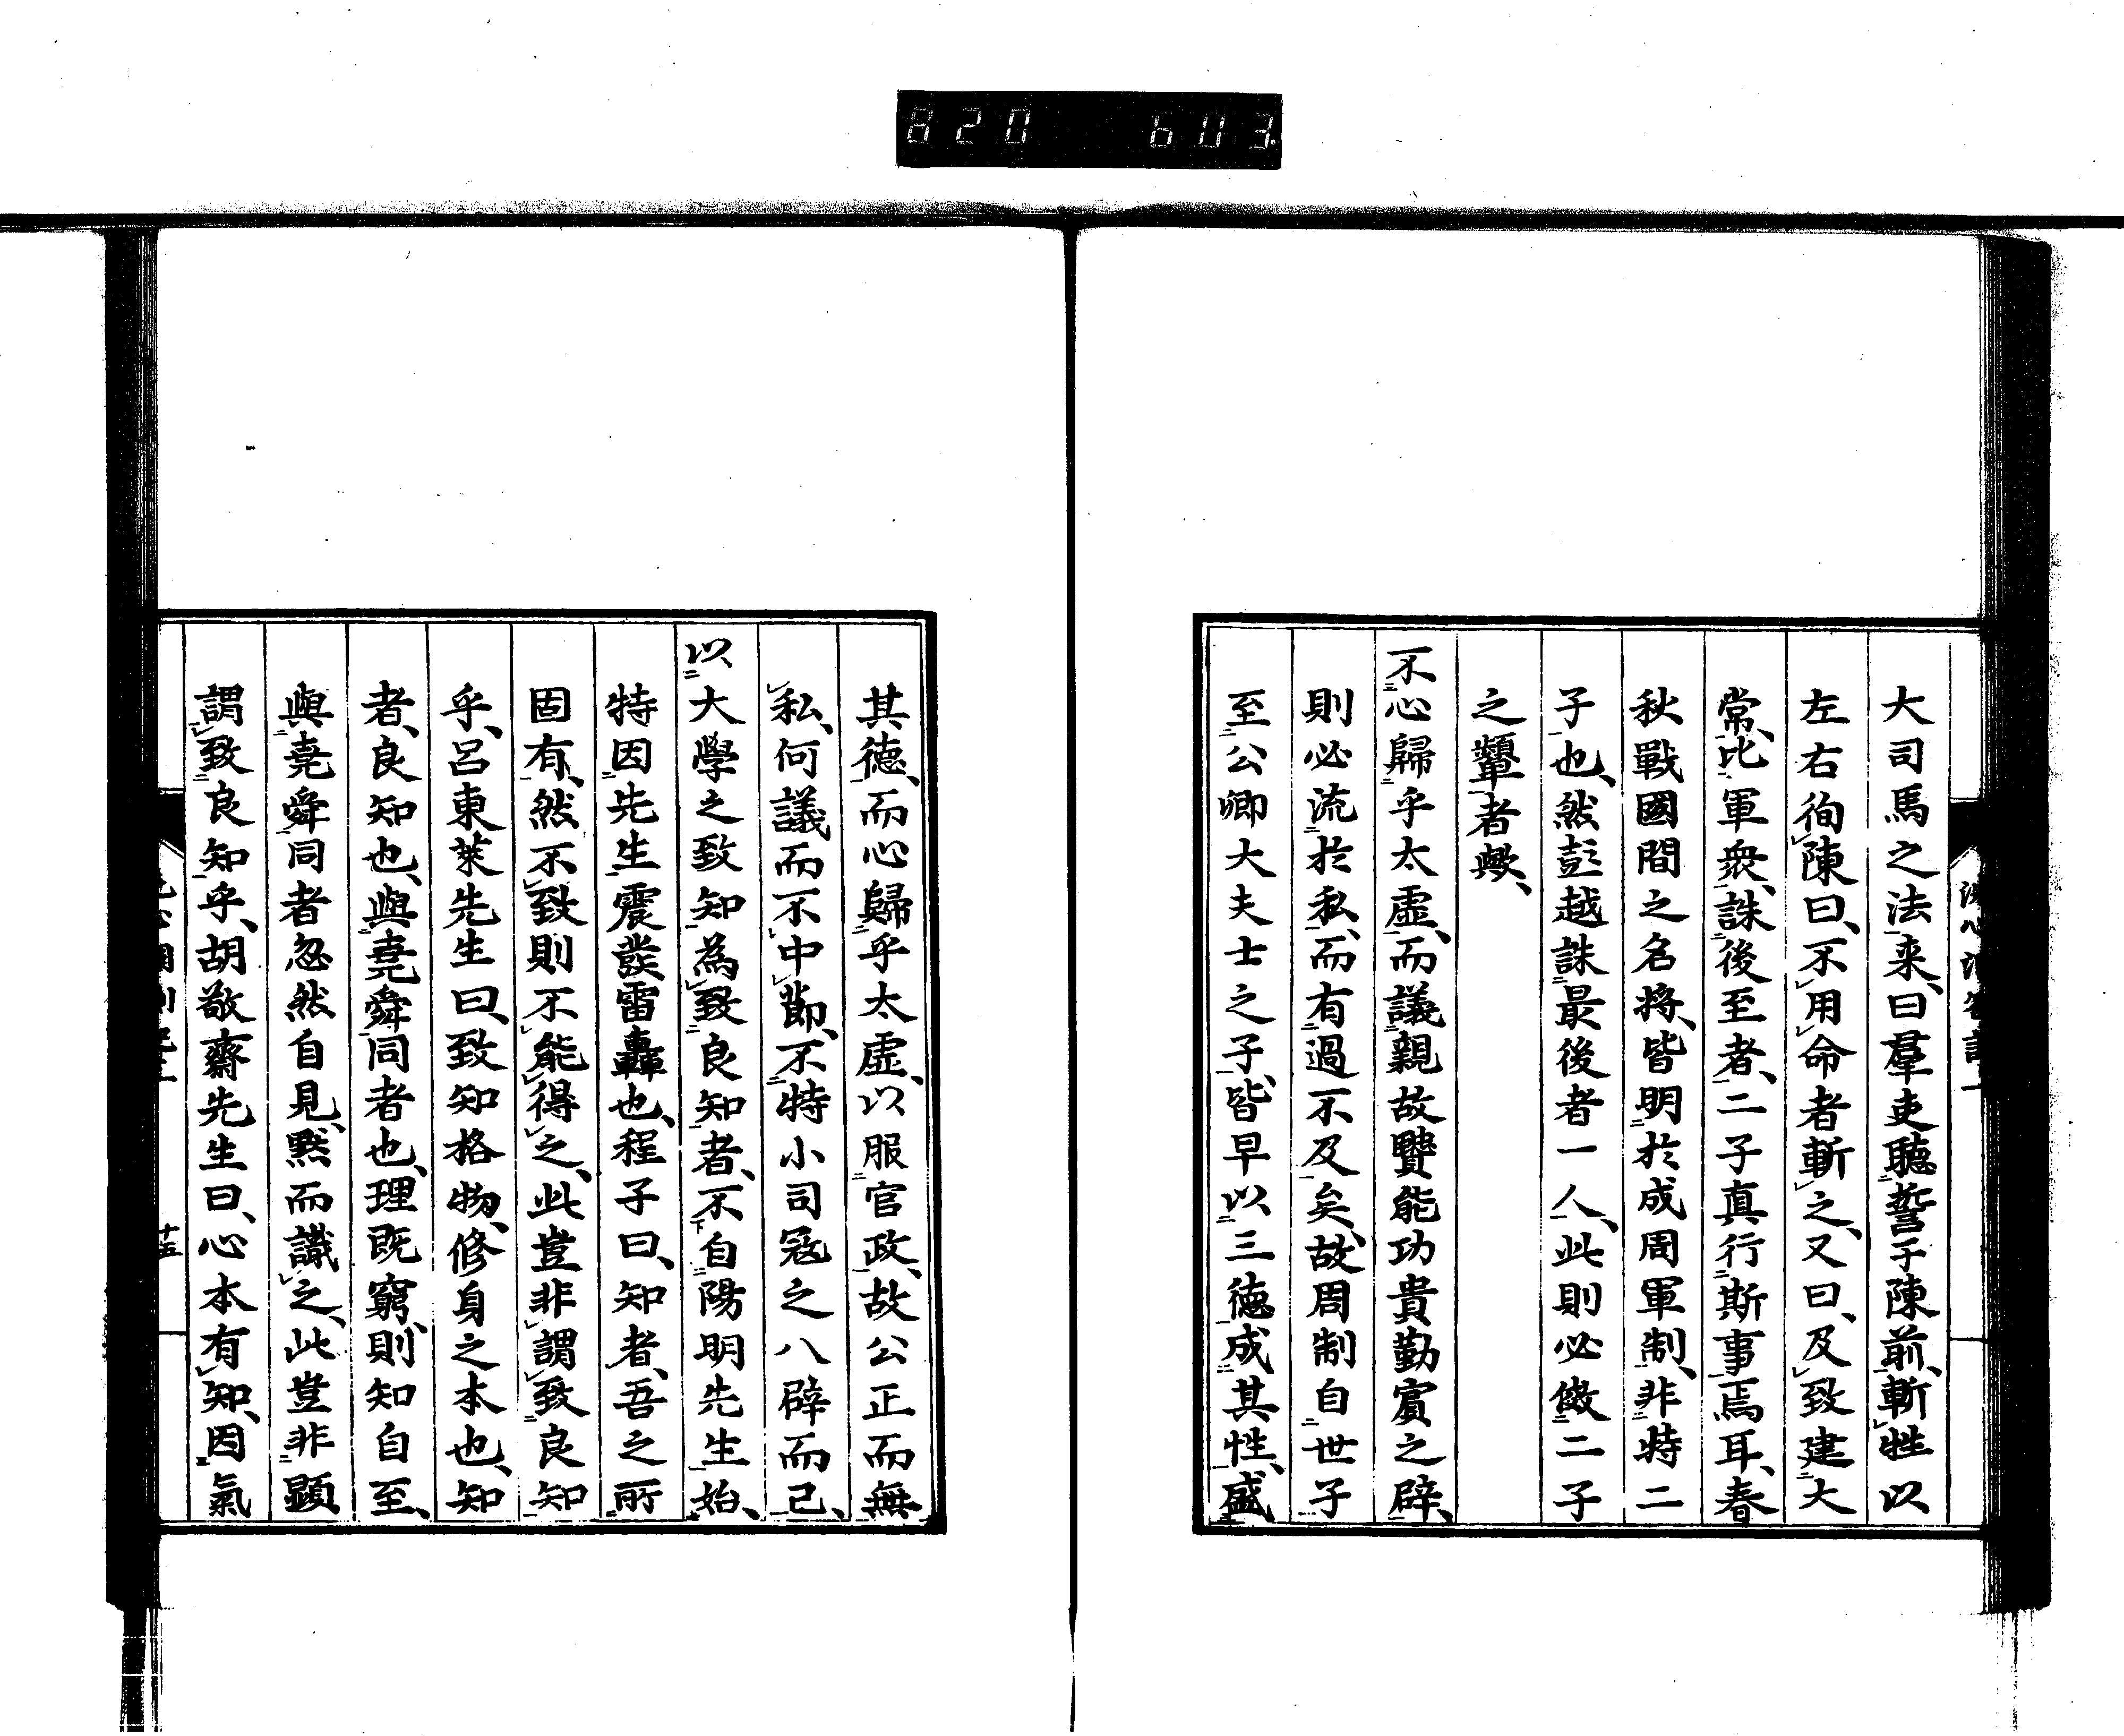 820 603
大司馬之法来、曰羣吏聽誓于陳前、斬牲以
左右徇陳曰、不用命者斬之、又曰、及致建大
常、比軍衆、誅後至者、二子真行斯事焉耳、春
秋戰國間之名將、皆明於成周軍制、非特二
子也、然彭越誅最後者一人、此則必倣二子
之顰者歟、
不心歸乎太虛、而議親故賢能功貴勤賓之辟、
則必流於私、而有過不及矣、故周制自世子
至公卿大夫士之子、皆早以三德成其性、盛
其德、而心歸乎太虛、以服官政、故公正而無
私、何議而不中節、不特小司冦之八辟而已、
以大學之致知為致良知者、不自陽明先生始、
特因先生震發雷轟也、程子曰、知者、吾之所
固有、然不致則不能得之、此豈非謂致良知
乎、呂東萊先生曰、致知格物、修身之本也、知
者、良知也、與堯舜同者也、理既窮、則知自至、
與堯舜同者忽然自見、默而識之、此豈非顕
謂致良知乎、胡敬齋先生曰、心本有知、因氣
十五